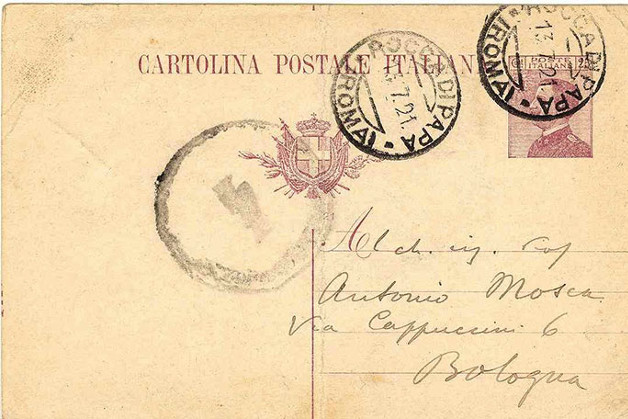 CARTOLINA POSTALE ITALIANA
ROCCA DI PAPA
(ROMA)
13.7.21.
ROCCA DI PAPA
(ROMA)
13.7.21.
POSTE
ITALIANE
25
Al ch. ig.
Antonio Mosca
Via Cappuccini 6
Bologna